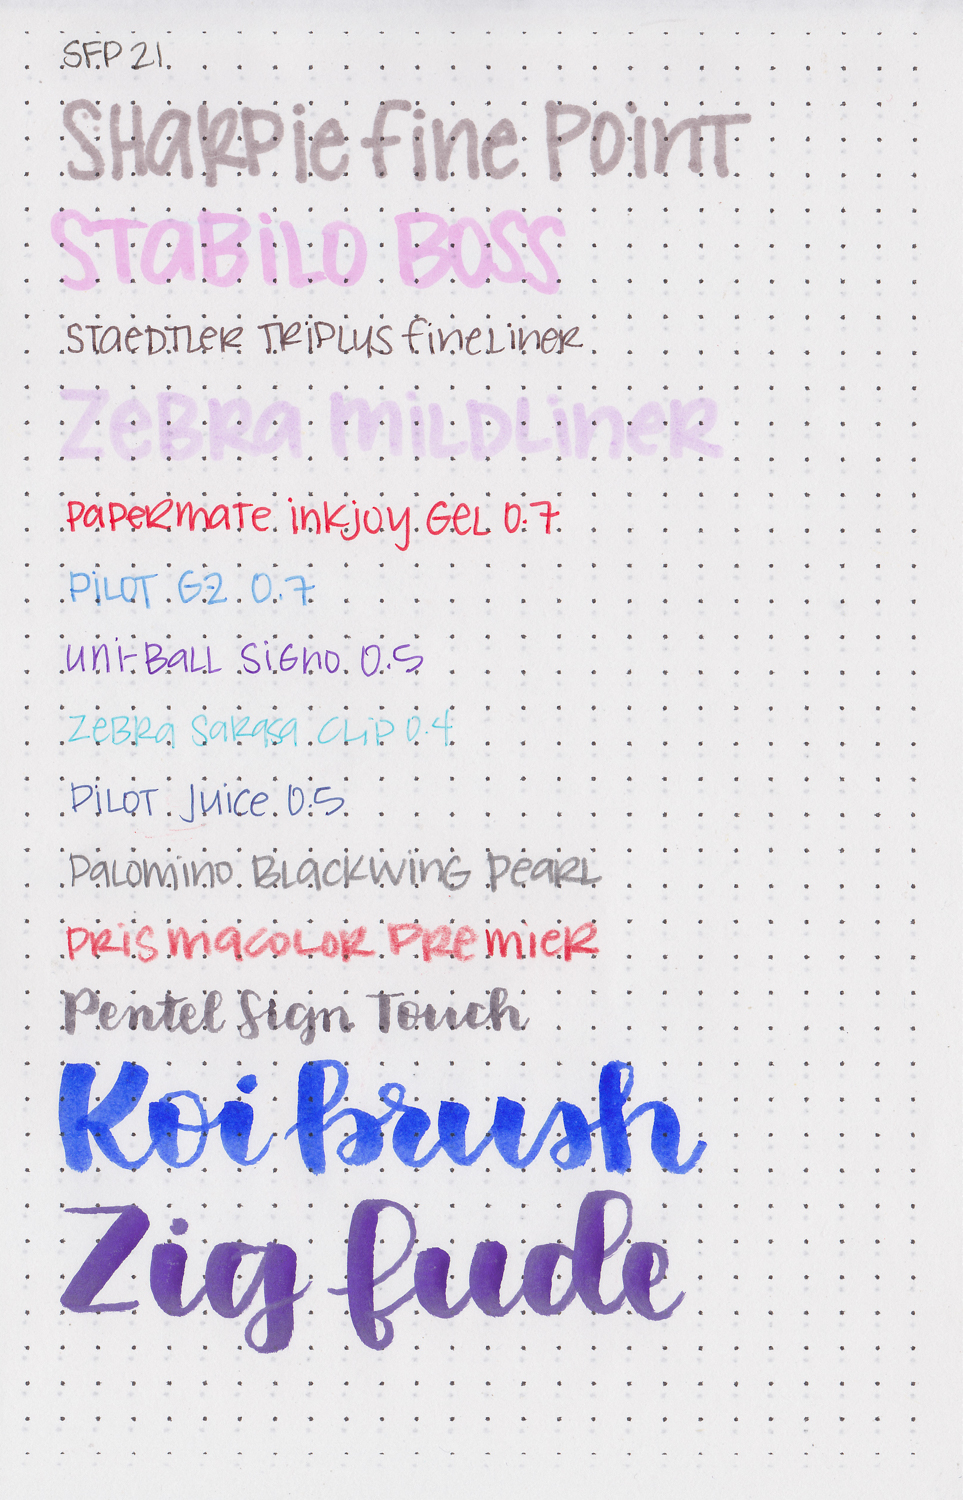 SFP 21
Sharpie fine Point
Stabilo Boss
Staedtler Triplus fineliner
Zebra Mildliner
Papermate inkjoy Gel 0.7
Pilot G2 0.7
uni-Ball Signo 0.5
Zebra Sarasa Clip 0.4
Pilot Juice 0.5
Palomino Blackwing Pearl
Prismacolor Premier
Pentel Sign Touch
Koi brush
Zig fude